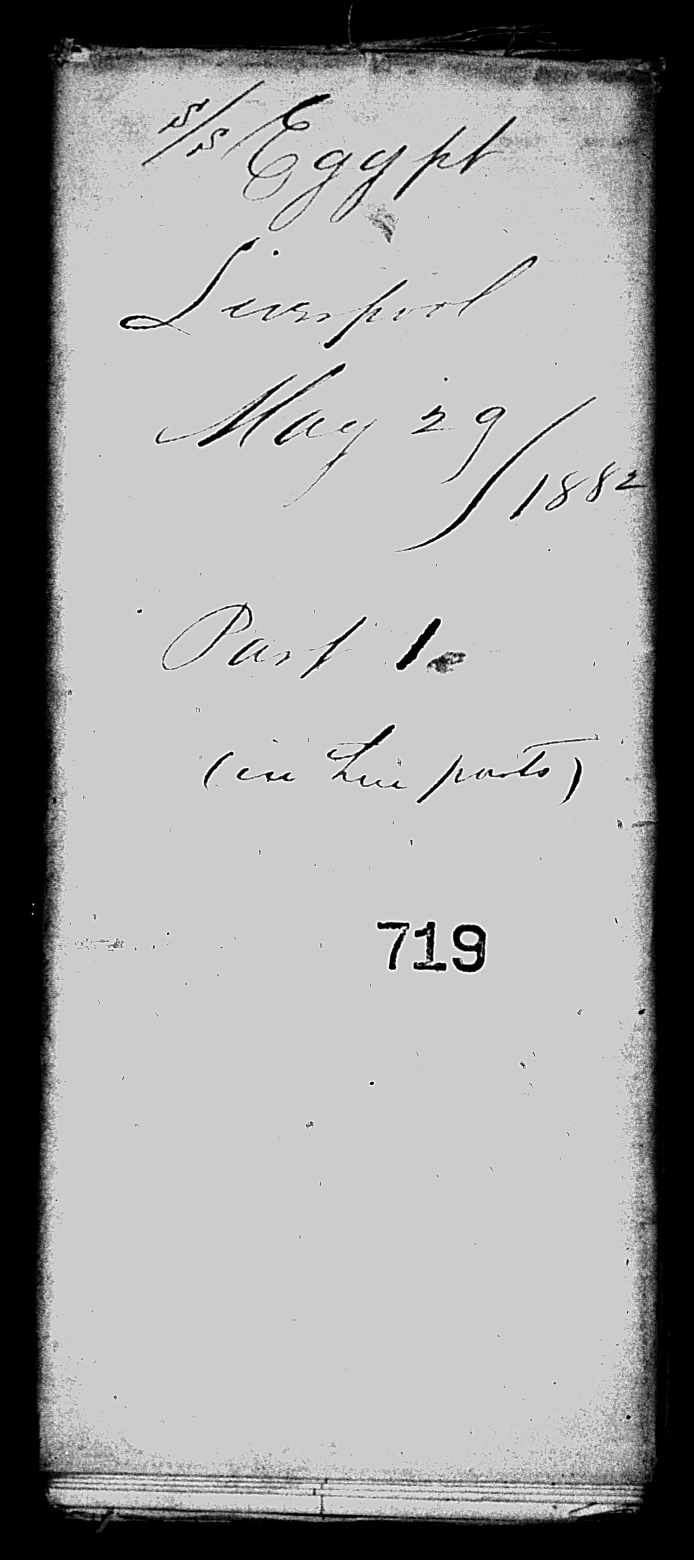 S/S Egypt
Liverpool
May 29/1882
Part 1.
(in two parts)
719